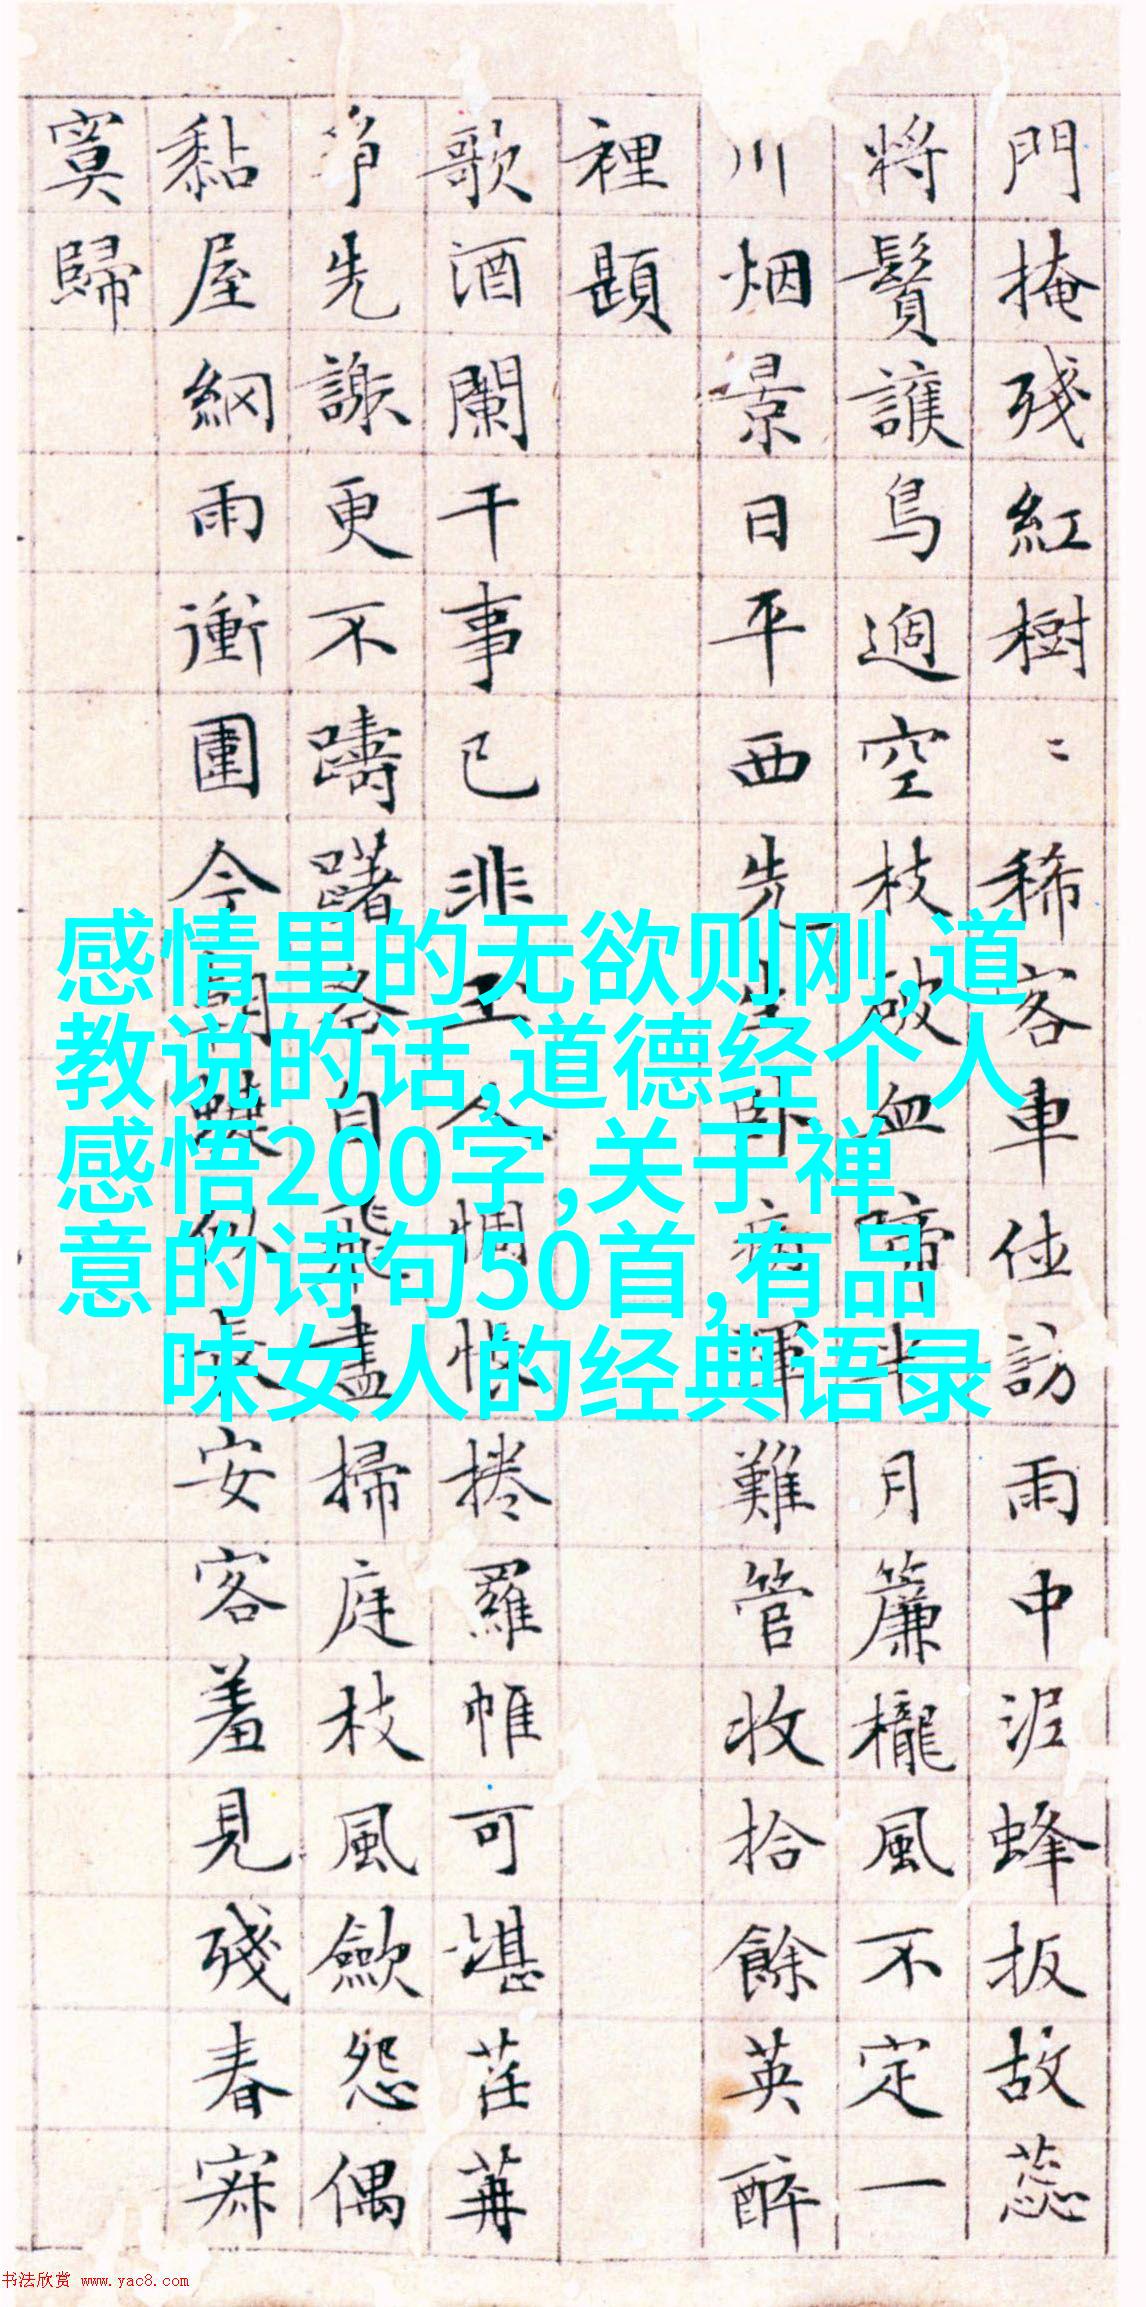 門掩殘紅樹〻稀客車訪雨中泥蜂扳故蕊
將鬢護鳥過空枝破血啼半月簾櫳風不定一
川烟景日平西先生卧病難管收拾餘英醉
裡題
歌酒闌干事已非玉人惆悵捲羅帷可堪荏苒
爭先謝更不躊躇各自飛盡掃庭枝風歛怨偶
黏屋網雨衝圍今朝似長安客羞見殘春寂
寞歸
感情里的无欲则刚,道
教说的话,道德经个人
感悟200字,关于禅
意的诗句50首,有品
味女人的经典语录
书法欣赏 www.yac8.com